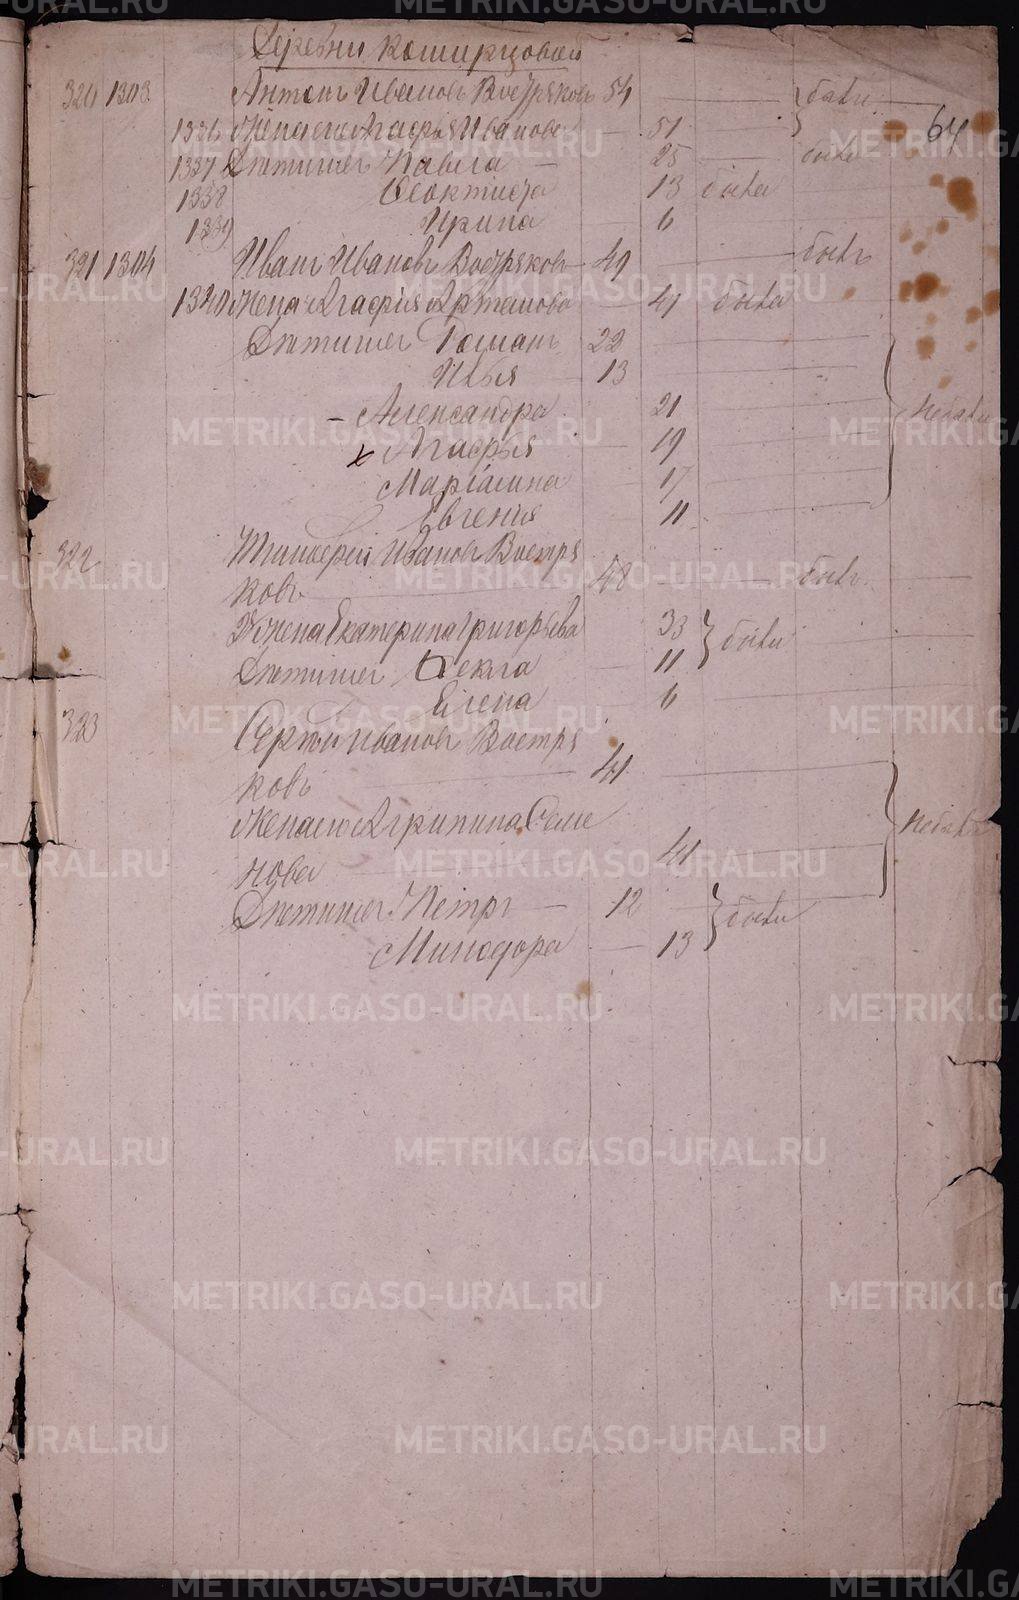 Деревни Коширцовой
320 1303 Антонъ Ивановъ Востряковъ 54 были
64
1336 Жена его Агафья Иванова 51
1337 Дѣти ихъ Павла 25 была
1338 Феоктиста 13 была
1339 Ирина 6
321 1304 Иванъ Ивановъ Востряковъ 49 былъ
1340 Жена Агафия Артамонова 41 была
Дѣти ихъ Романъ 22
Илья 13
Александра 21 Небыли
Агафья 19
Маріамна 17
Евгения 11
322 Тимофей Иванов Востря
ковъ 48 былъ
Жена Екатерина Григорьева 33 были
Дѣти ихъ Фекла 11
Елена 6
323 Сергѣй Ивановъ Востря
ковъ 41
Жена его Агрипина Семе
нова 41 Небыли
Дѣти ихъ Петръ 12 были
Минодора 13
METRIKI.GASO-URAL.RU